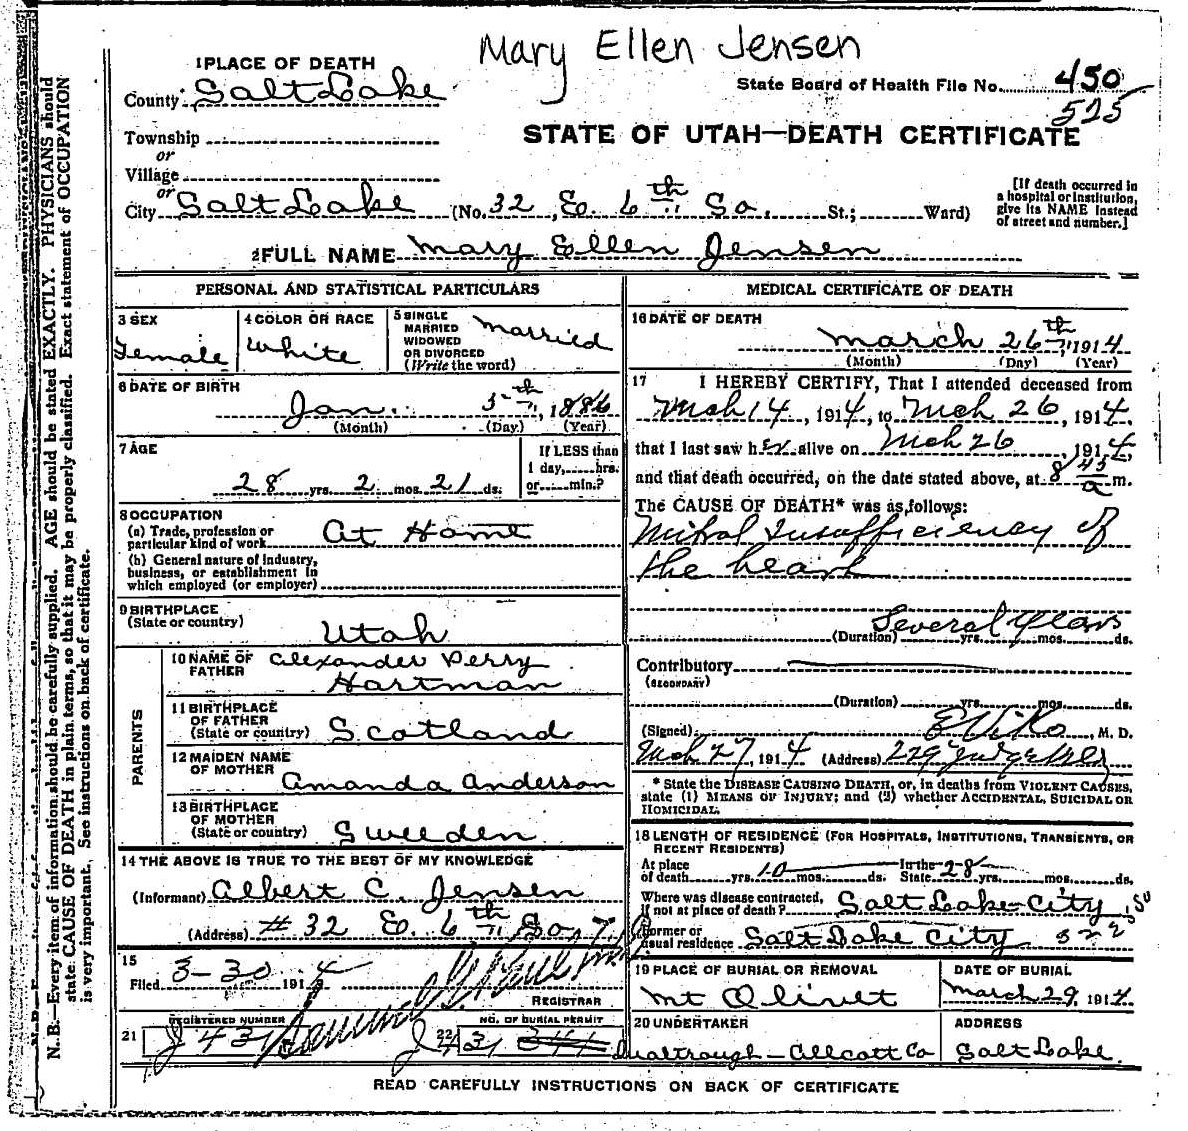 Mary Ellen Jensen
1 PLACE OF DEATH
County Salt Lake
State Board of Health File No. 450
525
Township
or
Village
or
STATE OF UTAH—DEATH CERTIFICATE
City Salt Lake (No. 32, E. 6th So. St.; Ward)
[If death occurred in a hospital or institution, give its NAME instead of street and number.]
2 FULL NAME Mary Ellen Jensen
PERSONAL AND STATISTICAL PARTICULARS
3 SEX
Female
4 COLOR OR RACE
White
5 SINGLE
MARRIED
WIDOWED
OR DIVORCED
(Write the word)
Married
6 DATE OF BIRTH
Jan. 5th, 1886
(Month) (Day) (Year)
7 AGE
28 yrs. 2 mos. 21 ds.
If LESS than
1 day, hrs.
or min.?
8 OCCUPATION
(a) Trade, profession or
particular kind of work At Home
(b) General nature of industry,
business, or establishment in
which employed (or employer)
9 BIRTHPLACE
(State or country)
Utah
PARENTS
10 NAME OF
FATHER
Alexander Perry
Hartman
11 BIRTHPLACE
OF FATHER
(State or country) Scotland
12 MAIDEN NAME
OF MOTHER
Amanda Anderson
13 BIRTHPLACE
OF MOTHER
(State or country) Sweeden
14 THE ABOVE IS TRUE TO THE BEST OF MY KNOWLEDGE
(Informant) Albert C. Jensen
(Address) # 32 E. 6th So.
15
Filed 3-30 1914
REGISTRAR
21
REGISTERED NUMBER
J 431
22
NO. OF BURIAL PERMIT
J 431
MEDICAL CERTIFICATE OF DEATH
16 DATE OF DEATH
March 26th, 1914
(Month) (Day) (Year)
17 I HEREBY CERTIFY, That I attended deceased from
Mch 14, 1914, to Mch 26, 1914,
that I last saw her alive on Mch 26, 1914,
and that death occurred, on the date stated above, at 8 45 a m.
The CAUSE OF DEATH* was as follows:
Mitral Insufficiency of
the heart
Several Years
(Duration) yrs. mos. ds.
Contributory
(SECONDARY)
(Duration) yrs. mos. ds.
(Signed) , M. D.
Mch 27, 1914 (Address) 229 Judge Bldg
* State the DISEASE CAUSING DEATH, or, in deaths from VIOLENT CAUSES,
state (1) MEANS OF INJURY; and (2) whether ACCIDENTAL, SUICIDAL OR
HOMICIDAL.
18 LENGTH OF RESIDENCE (FOR HOSPITALS, INSTITUTIONS, TRANSIENTS, OR
RECENT RESIDENTS)
At place In the
of death yrs. 10 mos. ds. State 28 yrs. mos. ds.
Where was disease contracted,
if not at place of death? Salt Lake City
Former or
usual residence Salt Lake City
19 PLACE OF BURIAL OR REMOVAL
Mt Olivet
DATE OF BURIAL
March 29, 1914
20 UNDERTAKER
ADDRESS
Salt Lake
READ CAREFULLY INSTRUCTIONS ON BACK OF CERTIFICATE
N. B.—Every item of information should be carefully supplied. AGE should be stated EXACTLY. PHYSICIANS should
state CAUSE OF DEATH in plain terms, so that it may be properly classified. Exact statement of OCCUPATION
is very important. See instructions on back of certificate.